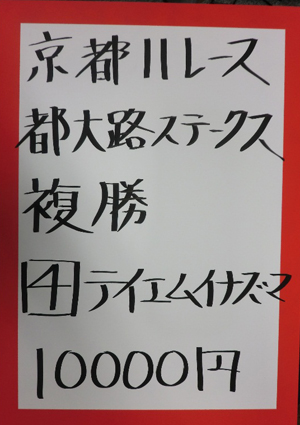 京都11レース
都大路ステークス
複勝
4 テイエムイナズマ
10000円